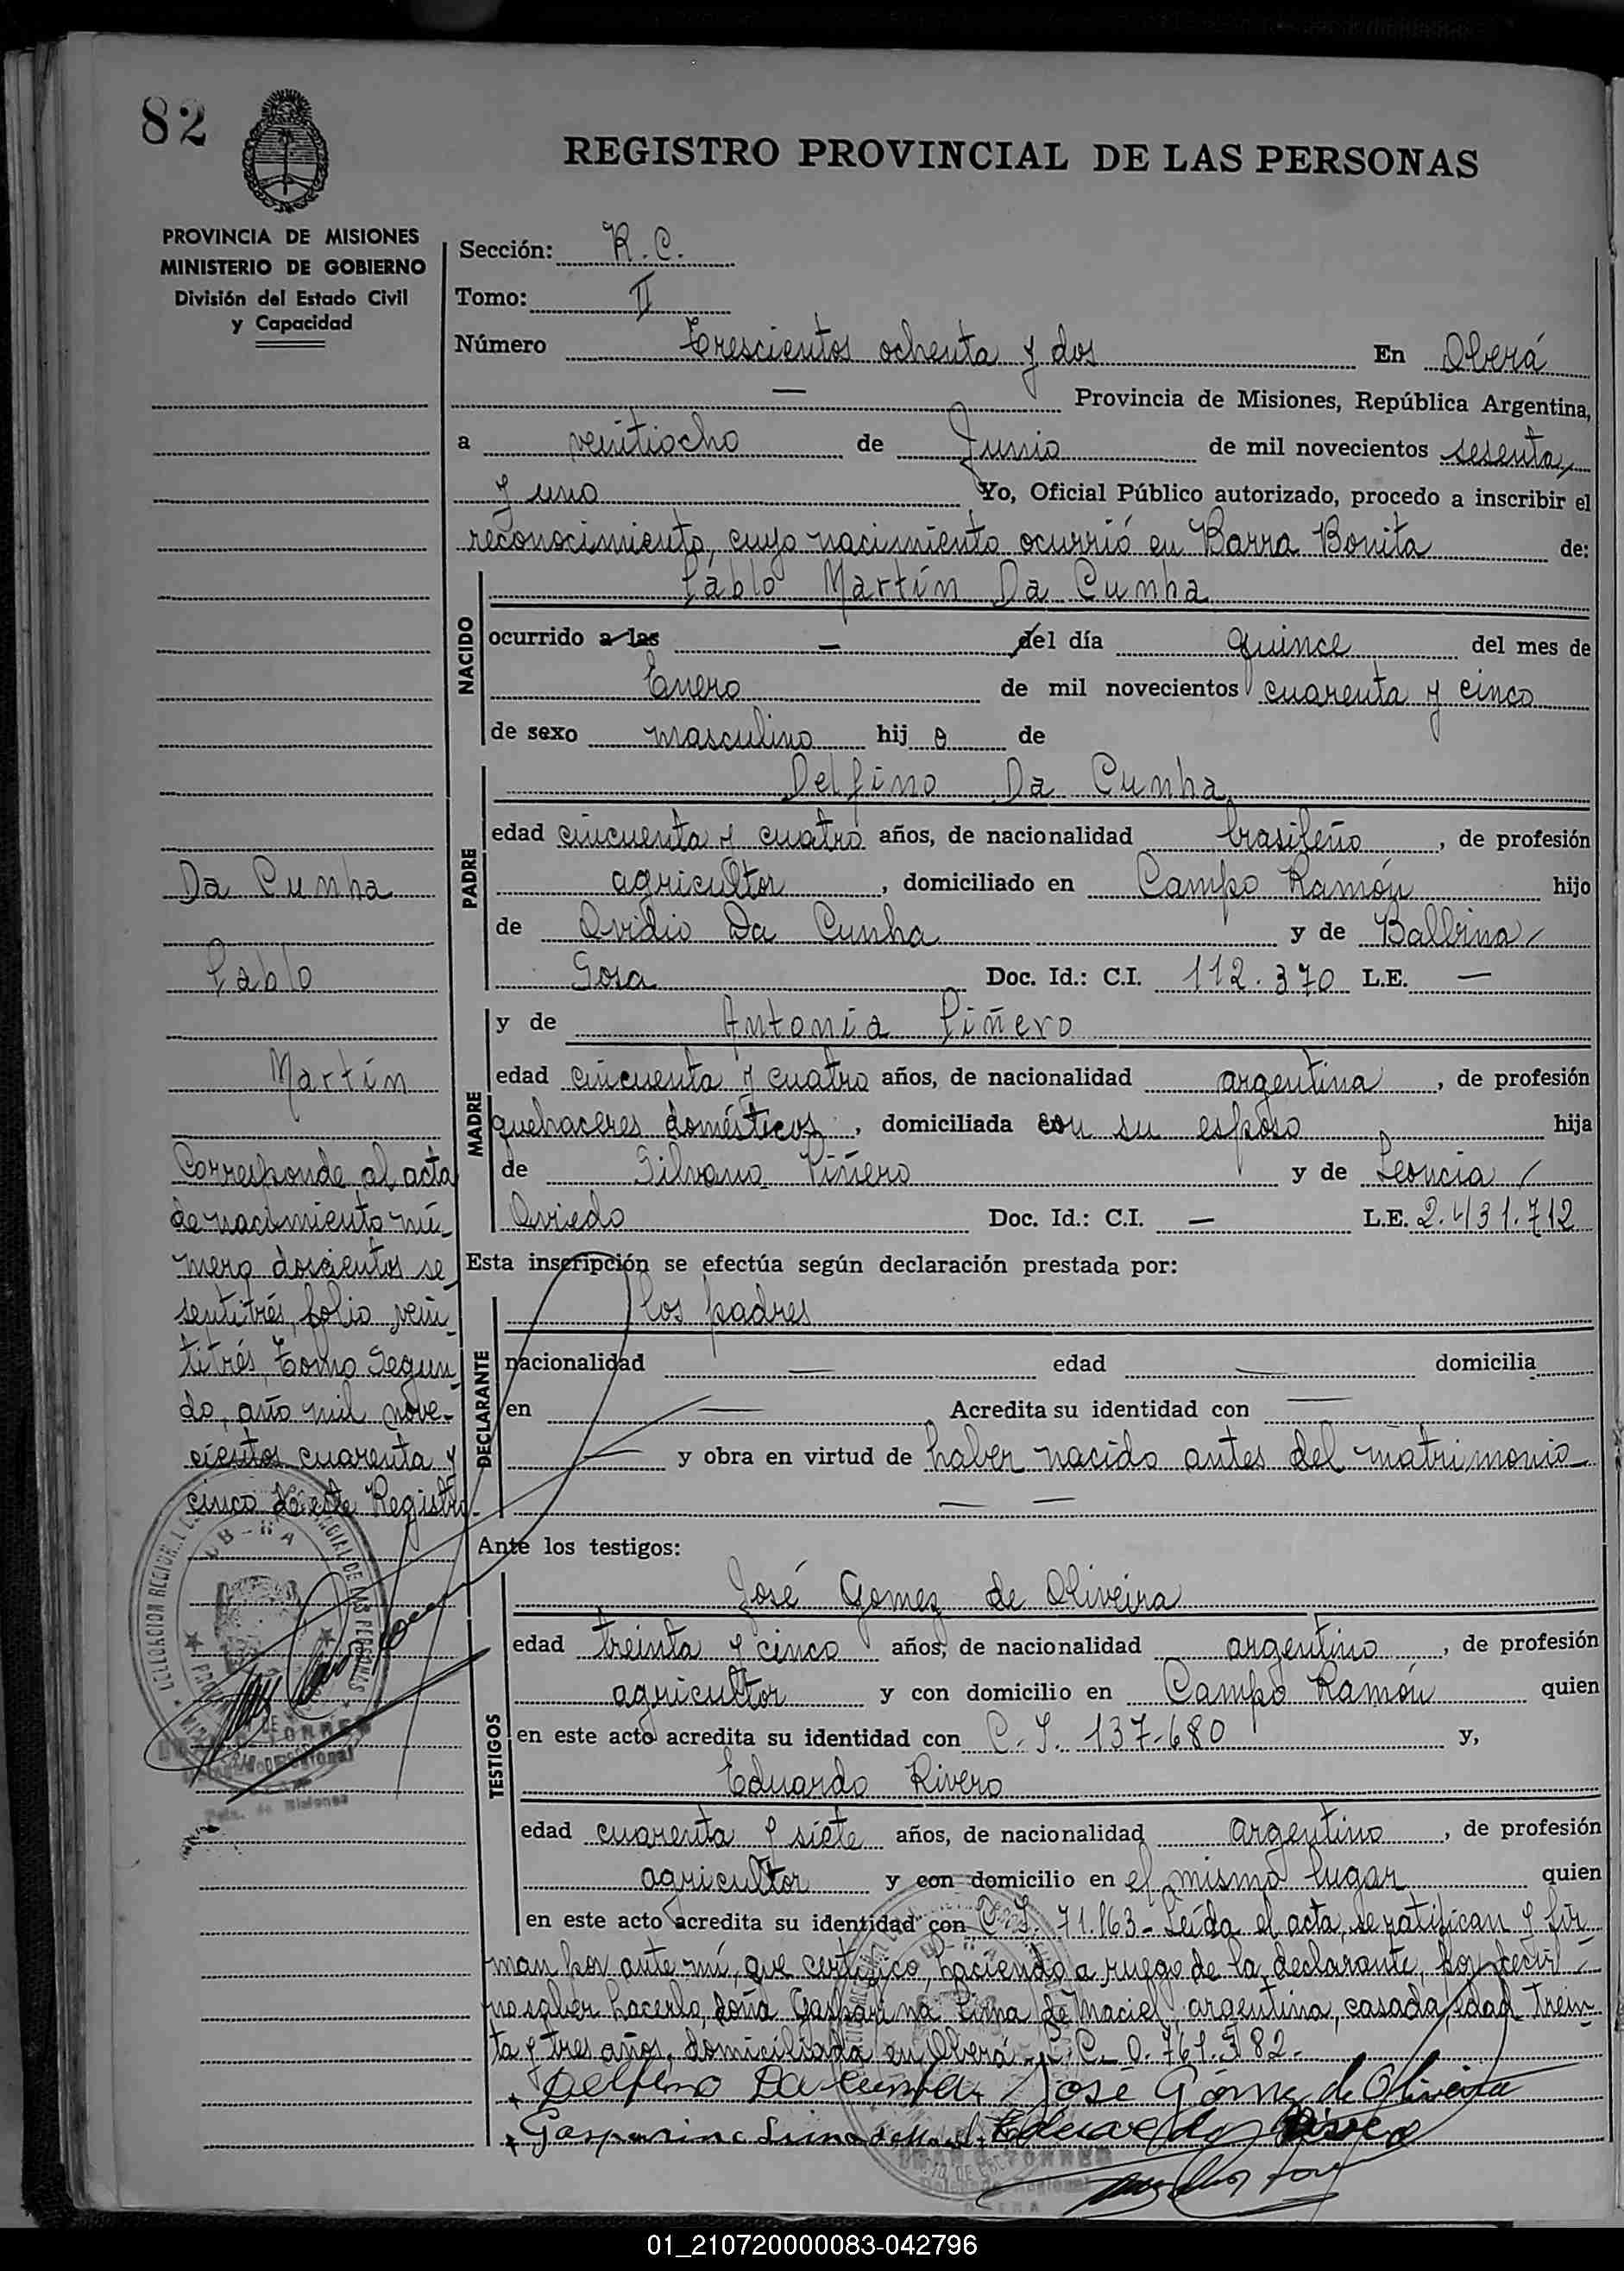 82
REGISTRO PROVINCIAL DE LAS PERSONAS
PROVINCIA DE MISIONES
MINISTERIO DE GOBIERNO
División del Estado Civil
y Capacidad
Sección: R.C.
Tomo: II
Número Trescientos ochenta y dos En Oberá
— Provincia de Misiones, República Argentina,
a veintiocho de Junio de mil novecientos sesenta
y uno Yo, Oficial Público autorizado, procedo a inscribir el
reconocimiento, cuyo nacimiento ocurrió en Barra Bonita de:
NACIDO
Pablo Martín Da Cunha
ocurrido a las — del día quince del mes de
Enero de mil novecientos cuarenta y cinco
de sexo masculino hijo de
PADRE
Delfino Da Cunha
edad cincuenta y cuatro años, de nacionalidad brasileño, de profesión
agricultor, domiciliado en Campo Ramón hijo
de Ovidio Da Cunha y de Balbina
Sosa Doc. Id.: C.I. 112.370 L.E. —
MADRE
y de Antonia Piñero
edad cincuenta y cuatro años, de nacionalidad argentina, de profesión
quehaceres domésticos, domiciliada con su esposo hija
de Silvano Piñero y de Leoncia
Oviedo Doc. Id.: C.I. — L.E. 2.431.712
Esta inscripción se efectúa según declaración prestada por:
DECLARANTE
los padres
nacionalidad — edad — domicilia
en — Acredita su identidad con —
— y obra en virtud de haber nacido antes del matrimonio
— —
Ante los testigos:
TESTIGOS
José Gomez de Oliveira
edad treinta y cinco años, de nacionalidad argentino, de profesión
agricultor y con domicilio en Campo Ramón quien
en este acto acredita su identidad con C.I. 137-680 y,
Eduardo Rivero
edad cuarenta y siete años, de nacionalidad argentino, de profesión
agricultor y con domicilio en el mismo lugar quien
en este acto acredita su identidad con C.I. 71.163- Leída el acta, se ratifican y fir
man por ante mí, que certifico, haciendo a ruego de la declarante, por decir
no saber hacerlo, doña Gasparina de Maciel, argentina, casada, edad trein
ta y tres años, domiciliada en Oberá
Delfino Da Cunha José Gómez de Oliveira
Gasparina Eduardo Rivero
Da Cunha
Pablo
Martín
Corresponde al acta
de nacimiento nú-
mero doscientos se
sentitrés, folio vein
titrés, Tomo Segun
do, año mil nove-
cientos cuarenta y
cinco de este Registro.
01_210720000083-042796